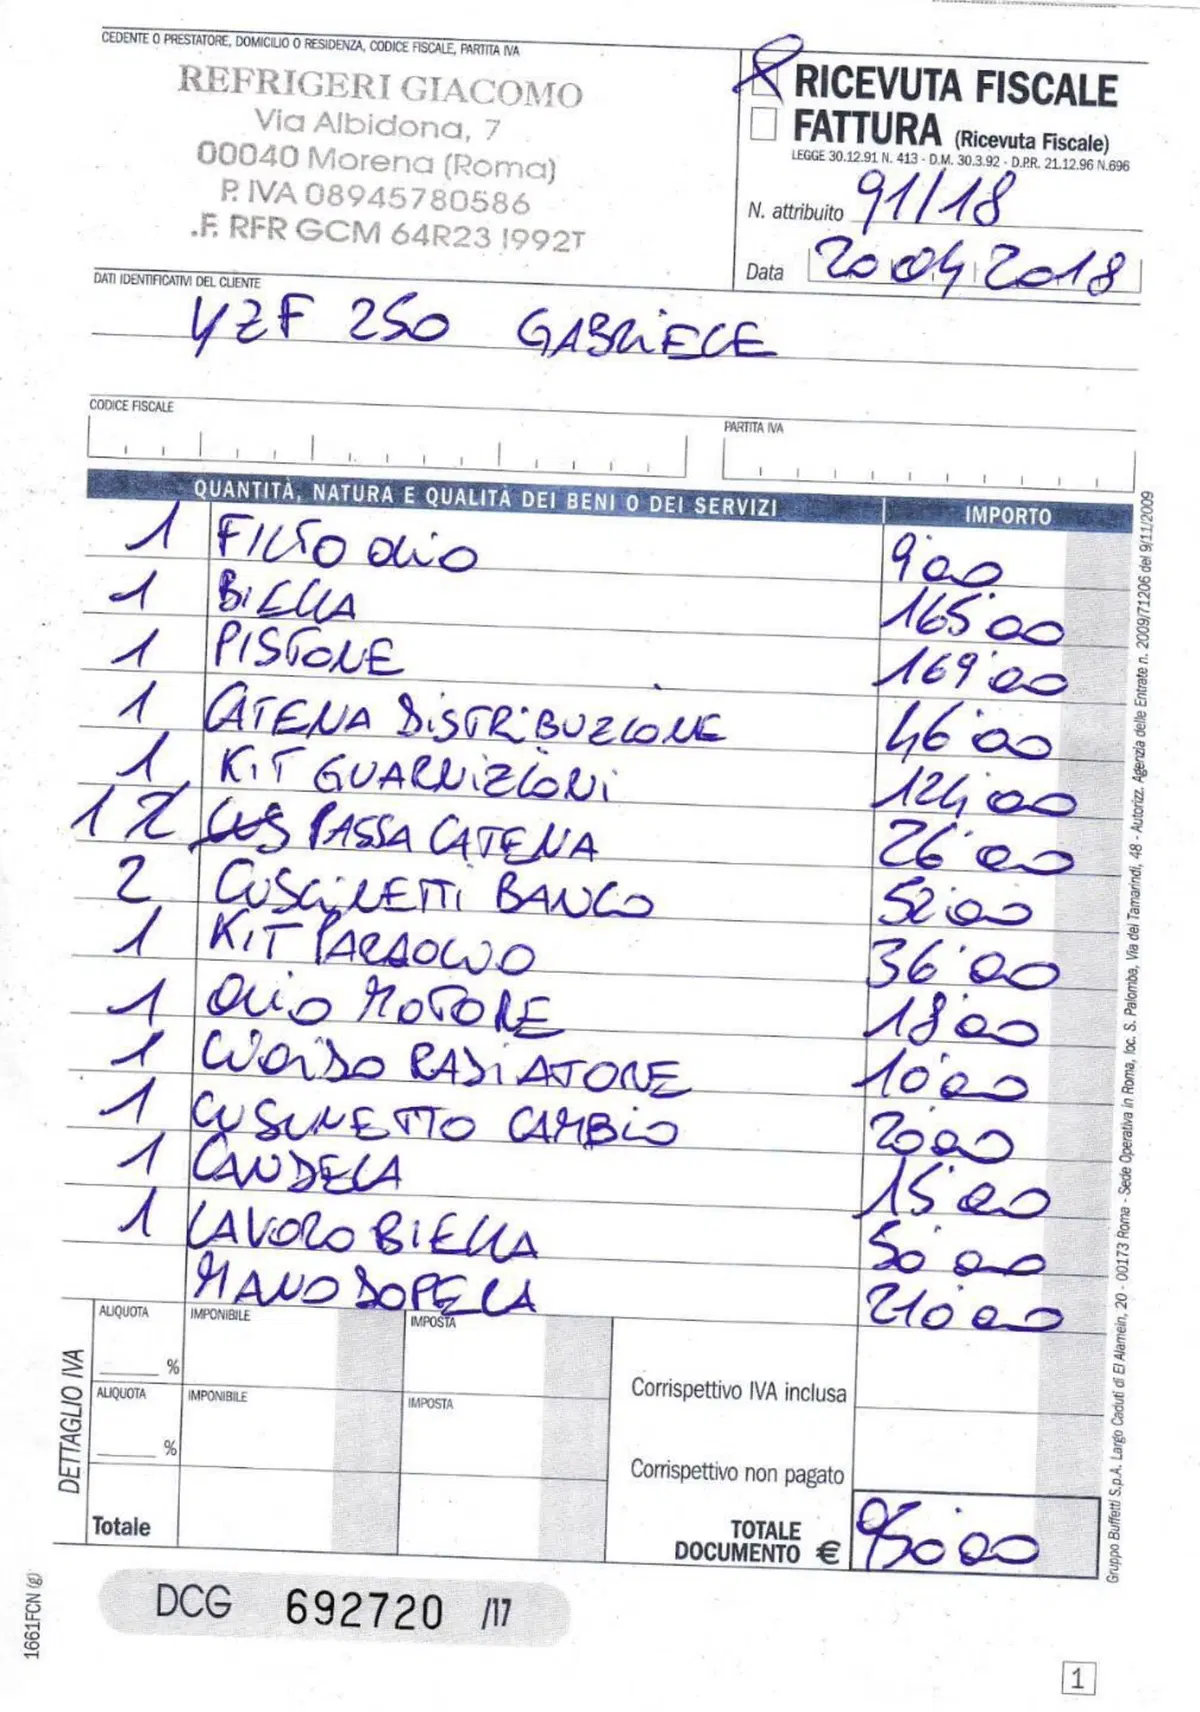 CEDENTE O PRESTATORE, DOMICILIO O RESIDENZA, CODICE FISCALE, PARTITA IVA
REFRIGERI GIACOMO
Via Albidona, 7
00040 Morena (Roma)
P. IVA 08945780586
.F. RFR GCM 64R23 I992T
RICEVUTA FISCALE
FATTURA (Ricevuta Fiscale)
LEGGE 30.12.91 N. 413 - D.M. 30.3.92 - D.P.R. 21.12.96 N.696
N. attribuito 91/18
Data 20 04 2018
DATI IDENTIFICATIVI DEL CLIENTE
YZF 250 GABRIELE
CODICE FISCALE
PARTITA IVA
QUANTITÀ, NATURA E QUALITÀ DEI BENI O DEI SERVIZI IMPORTO
1 FILTO OLIO 9'00
1 BIELLA 165'00
1 PISTONE 169'00
1 CATENA DISTRIBUZIONE 46'00
1 KIT GUARNIZIONI 124'00
1 PASSA CATENA 26'00
2 CUSCINETTI BANCO 52'00
1 KIT PARAOLIO 36'00
1 OLIO MOTORE 18'00
1 RADIATORE 10'00
1 CUSCINETTO CAMBIO 20'00
1 CANDELA 15'00
1 LAVORO BIELLA 50'00
MANODOPERA 210'00
DETTAGLIO IVA
ALIQUOTA IMPONIBILE IMPOSTA
%
Corrispettivo IVA inclusa
ALIQUOTA IMPONIBILE IMPOSTA
%
Corrispettivo non pagato
Totale
TOTALE
DOCUMENTO € 950'00
DCG 692720 /17
1661FCN (g)
1
Gruppo Buffetti S.p.A. Largo Caduti di El Alamein, 20 - 00173 Roma - Sede Operativa in Roma, loc. S. Palomba, Via dei Tamarindi, 48 - Autorizz. Agenzia delle Entrate n. 2009/71206 del 9/11/2009